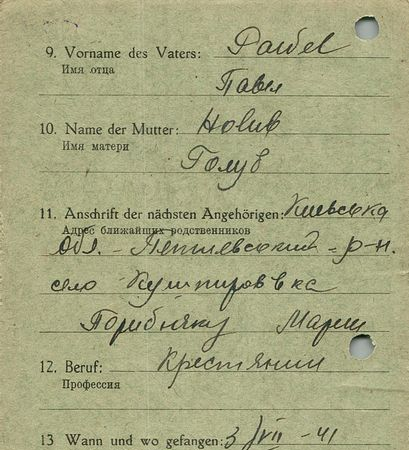 9. Vorname des Vaters:
Имя отца
Павел
10. Name der Mutter:
Имя матери
Голуб
11. Anschrift der nächsten Angehörigen: Киевська
Адрес ближайших родственников
обл. - р-н.
село
Марии
12. Beruf: Крестянин
Профессия
13 Wann und wo gefangen: 3/VII - 41